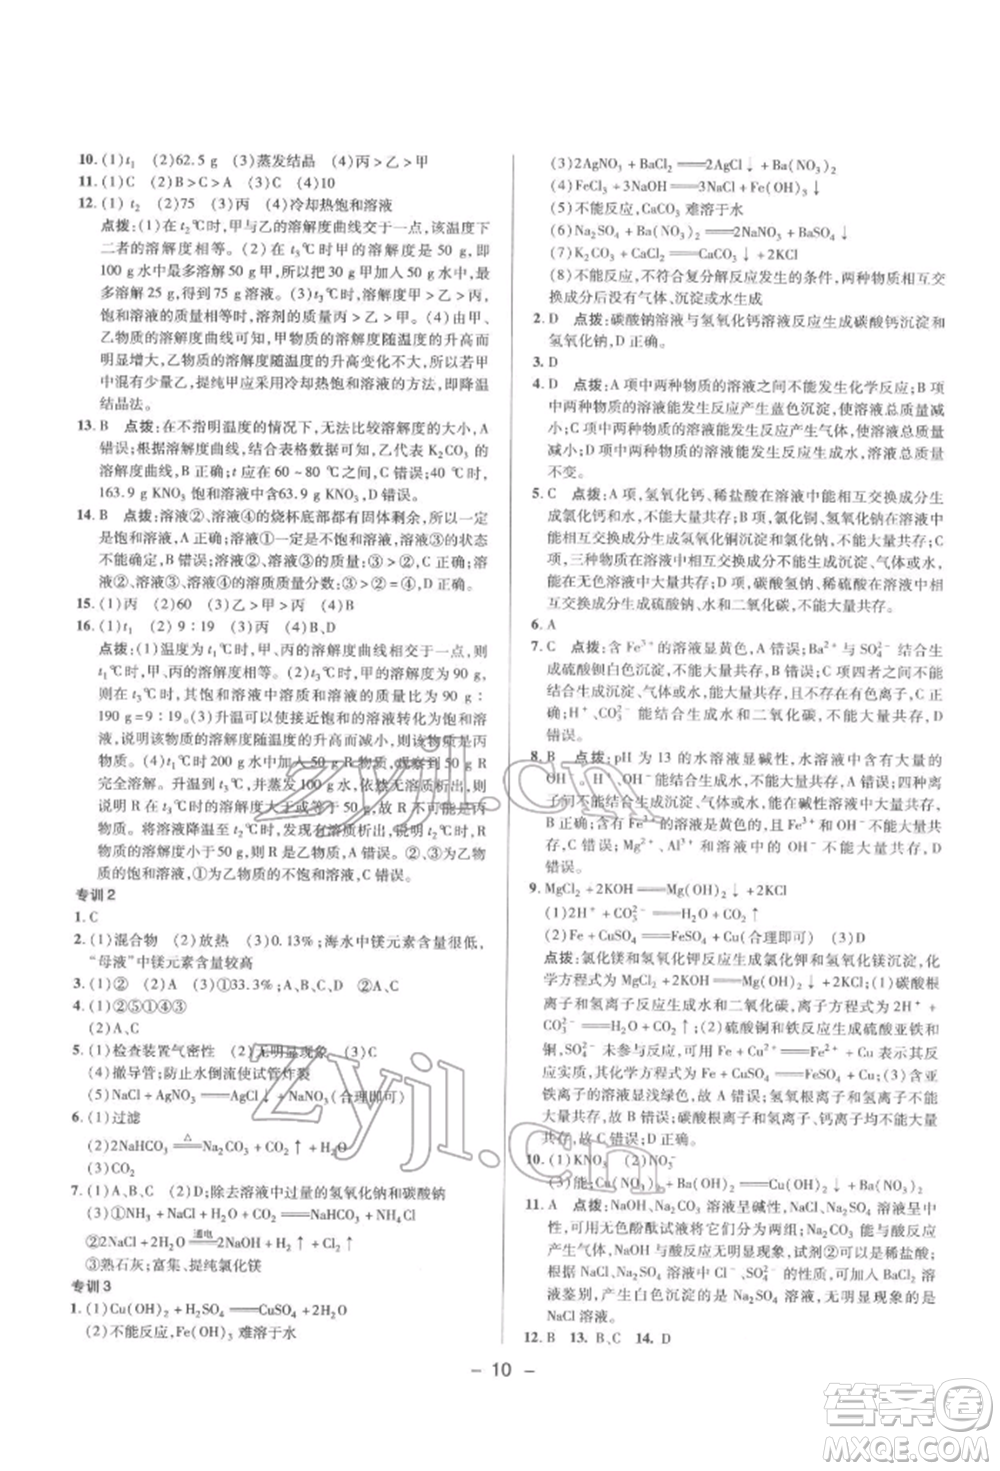 10. (1)t₁ (2)62.5 g (3)蒸发结晶 (4)丙＞乙＞甲
11. (1)C (2)B＞C＞A (3)B (4)10
12. (1) t₂ (2)75 (3)丙 (4)冷却热饱和溶液
点拨:(1)在 t₂℃时,甲与乙的溶解度曲线交于一点,该温度下
二者的溶解度相等。(2)在 t₃℃时甲的溶解度为 50 g,即
100 g 水中最多溶解 50 g 甲,所以 50 g 水中在该温度下最
多溶解 25 g,得到 75 g 溶液。(3)t₃℃时,丙的溶解度最小,
溶液的质量相等时,溶剂的质量最大的为丙溶液。(4)由甲、
乙物质的溶解度曲线可知,甲物质的溶解度随温度的升高而
明显增大,乙物质的溶解度随温度的升高变化不大,所以若甲
中混有少量乙,提纯甲应采用冷却热饱和溶液的方法,即降温
结晶法。
13. B 点拨:在不指明温度的情况下,无法比较溶解度的大小,A
错误;根据溶解度曲线,结合表格数据可知,乙代表 K₂CO₃ 的
溶解度曲线,B 正确;t 应在 60～80 ℃之间,C 错误;t ℃时,
163.9 g KNO₃ 饱和溶液中含63.9 g KNO₃,D 错误。
14. B 点拨:溶液②、溶液④的烧杯底部都有固体剩余,所以一定
是饱和溶液,A 正确;溶液①一定是不饱和溶液,溶液③的状态
不能确定,B 错误;溶液②、溶液③的质量:③＞②,C 正确;溶
液①、溶液③的溶质质量分数:③＞①,D 正确。
15. (1)丙 (2)60 (3)乙＞甲＞丙 (4)B
16. (1)t₁ (2) 9∶19 (3)丙 (4)B、D
点拨:(1)温度为 t₁℃时,甲、丙的溶解度曲线交于一点,则此
时甲、丙的溶解度相等。(2)t₂℃时,甲物质的溶解度为 90 g,
则其饱和溶液中溶质和溶液的质量比为 90 g∶
190 g=9∶19。(3)升温可以使接近饱和的溶液变成饱和溶
液,说明该物质的溶解度随温度的升高而减小,则该物质为丙
物质。(4)t₁℃时 200 g 水中加入50 g 固体R,充分搅拌,R
完全溶解。升温到 t₂℃,并蒸发 100 g 水,依然无溶质析出,
则此时该物质的溶解度大于或等于 50 g,故 R 不可能为丙物
质。将溶液降温至 t₁℃时,发现有溶质析出,说明 t₁℃时,R
物质的溶解度小于50 g,则 R 是甲物质。②、③为乙物质
的饱和溶液,①为乙物质的不饱和溶液。
专训 2
1. C
2. (1)混合物 (2)放热 (3)0.13%;海水中镁元素含量很低,
“母液”中镁元素含量较高
3. (1)② (2)A、D (3)①33.3%;②
4. (1)②⑤①④③
(2)A、C
5. (1)检查装置气密性 (2)无明显现象 (3)C
(4)撤导管;防止水倒流使试管炸裂
(5)NaCl + AgNO₃══AgCl↓ + NaNO₃(合理即可)
6. (1)过滤
(2)2NaHCO₃ ══△ Na₂CO₃ + CO₂↑ + H₂O
(3)CO₂
7. (1)A、B (2)A、C、D;除去溶液中过量的氢氧化钠和碳酸钠
(3)①NH₃ + NaCl + H₂O + CO₂══NaHCO₃↓ + NH₄Cl
②2NaCl + 2H₂O ══通电 2NaOH + H₂↑ + Cl₂↑
③熟石灰;富集、提纯氯化镁
专训 3
1. (1)Cu(OH)₂ + H₂SO₄══CuSO₄ + 2H₂O
(2)不能反应,Fe(OH)₃ 难溶于水
(3)2AgNO₃ + BaCl₂══2AgCl↓ + Ba(NO₃)₂
(4)FeCl₃ + 3NaOH══3NaCl + Fe(OH)₃↓
(5)不能反应,CaCO₃ 难溶于水
(6)Na₂SO₄ + Ba(NO₃)₂══2NaNO₃ + BaSO₄↓
(7)K₂CO₃ + CaCl₂══CaCO₃↓ + 2KCl
(8)不能反应,不符合复分解反应发生的条件,两种物质相互交
换成分后没有气体、沉淀或水生成
2. D 点拨:碳酸钠溶液与氢氧化钙溶液反应生成碳酸钙沉淀和
氢氧化钠,D 正确。
3. D
4. D 点拨:A 项中两种物质的溶液之间不能发生化学反应;B 项
中两种物质的溶液能发生反应产生蓝色沉淀,使溶液总质量减
小;C 项中两种物质的溶液能发生反应产生气体,使溶液总质量
减小;D 项中两种物质的溶液能发生反应生成水,溶液的总质量
不变。
5. C 点拨:A 项,氢氧化钙、稀盐酸在溶液中相互交换成分生
成氯化钙和水,不能大量共存;B 项,氯化铜、氢氧化钠在溶液中
能相互交换成分生成氢氧化铜沉淀和氯化钠,不能大量共存;C
项,三种物质在溶液中不能结合生成沉淀、气体或水,能大量共
存,且能在无色溶液中存在;D 项,碳酸氢钠、稀硫酸在溶液中相
互交换成分生成硫酸钠、水和二氧化碳,不能大量共存。
6. A
7. C 点拨:含 Fe³⁺的溶液显黄色,A 错误;Ba²⁺与 SO₄²⁻能结合生
成硫酸钡白色沉淀,不能大量共存,B 错误;C 项四者之间不能
结合生成沉淀、气体或水,能大量共存,且形成无色溶液,C 正
确;H⁺、CO₃²⁻能结合生成水和二氧化碳,不能大量共存,D
错误。
8. B 点拨:pH 为 13 的水溶液显碱性,水溶液中含有大量的
OH⁻,OH⁻与 NH₄⁺不能大量共存,A 错误;四种离
子间不能结合生成沉淀、气体或水,能在碱性溶液中大量共存,
B 正确;含 Fe³⁺的溶液是黄色的,且 Fe³⁺和 OH⁻不能大量共
存,C 错误;Mg²⁺、Al³⁺和溶液中的 OH⁻不能大量共存,D
错误。
9. MgCl₂ + 2KOH══Mg(OH)₂↓ + 2KCl
(1)2H⁺ + CO₃²⁻══H₂O + CO₂↑
(2)Fe + CuSO₄══FeSO₄ + Cu(合理即可) (3)D
点拨:氯化镁和氢氧化钾反应生成氯化钾和氢氧化镁沉淀,化
学方程式为 MgCl₂ + 2KOH══Mg(OH)₂↓ + 2KCl。(1)碳酸根
离子和氢离子反应生成水和二氧化碳,离子方程式为2H⁺ +
CO₃²⁻══H₂O + CO₂↑;(2)硫酸铜和铁反应生成硫酸亚铁和
铜,SO₄²⁻未参与反应,同 Fe + Cu²⁺══Fe²⁺ + Cu 所表示的反
应实质,其化学方程式为 Fe + CuSO₄══FeSO₄ + Cu;(3)含亚
铁离子的溶液显浅绿色,故 A 错误;钡离子和硫酸根离子不能
大量共存,故 B 错误;碳酸根离子和氢离子、钙离子均不能大
量共存,故 C 错误;D 正确。
10. (1)KNO₃ (2)NO₃⁻
(3)能;Cu(NO₃)₂ + Ba(OH)₂══Cu(OH)₂↓ + Ba(NO₃)₂
11. A 点拨:NaOH、Na₂CO₃ 溶液呈碱性,NaCl、Na₂SO₄ 溶液呈中
性,可用无色酚酞试液将它们分为两组;Na₂CO₃ 能与酸反应
产生气体,NaOH 与酸反应无明显现象,试剂②可选稀盐酸;
根据 NaCl、Na₂SO₄ 的阴离子的不同,试剂③可选用 BaCl₂ 溶
液鉴别,产生白色沉淀的是 Na₂SO₄ 溶液,无明显现象的是
NaCl 溶液。
12. B 13. B、C 14. D
－ 10 －
zyjl.cn
zyjl.cn
答案圈
MXQE.COM